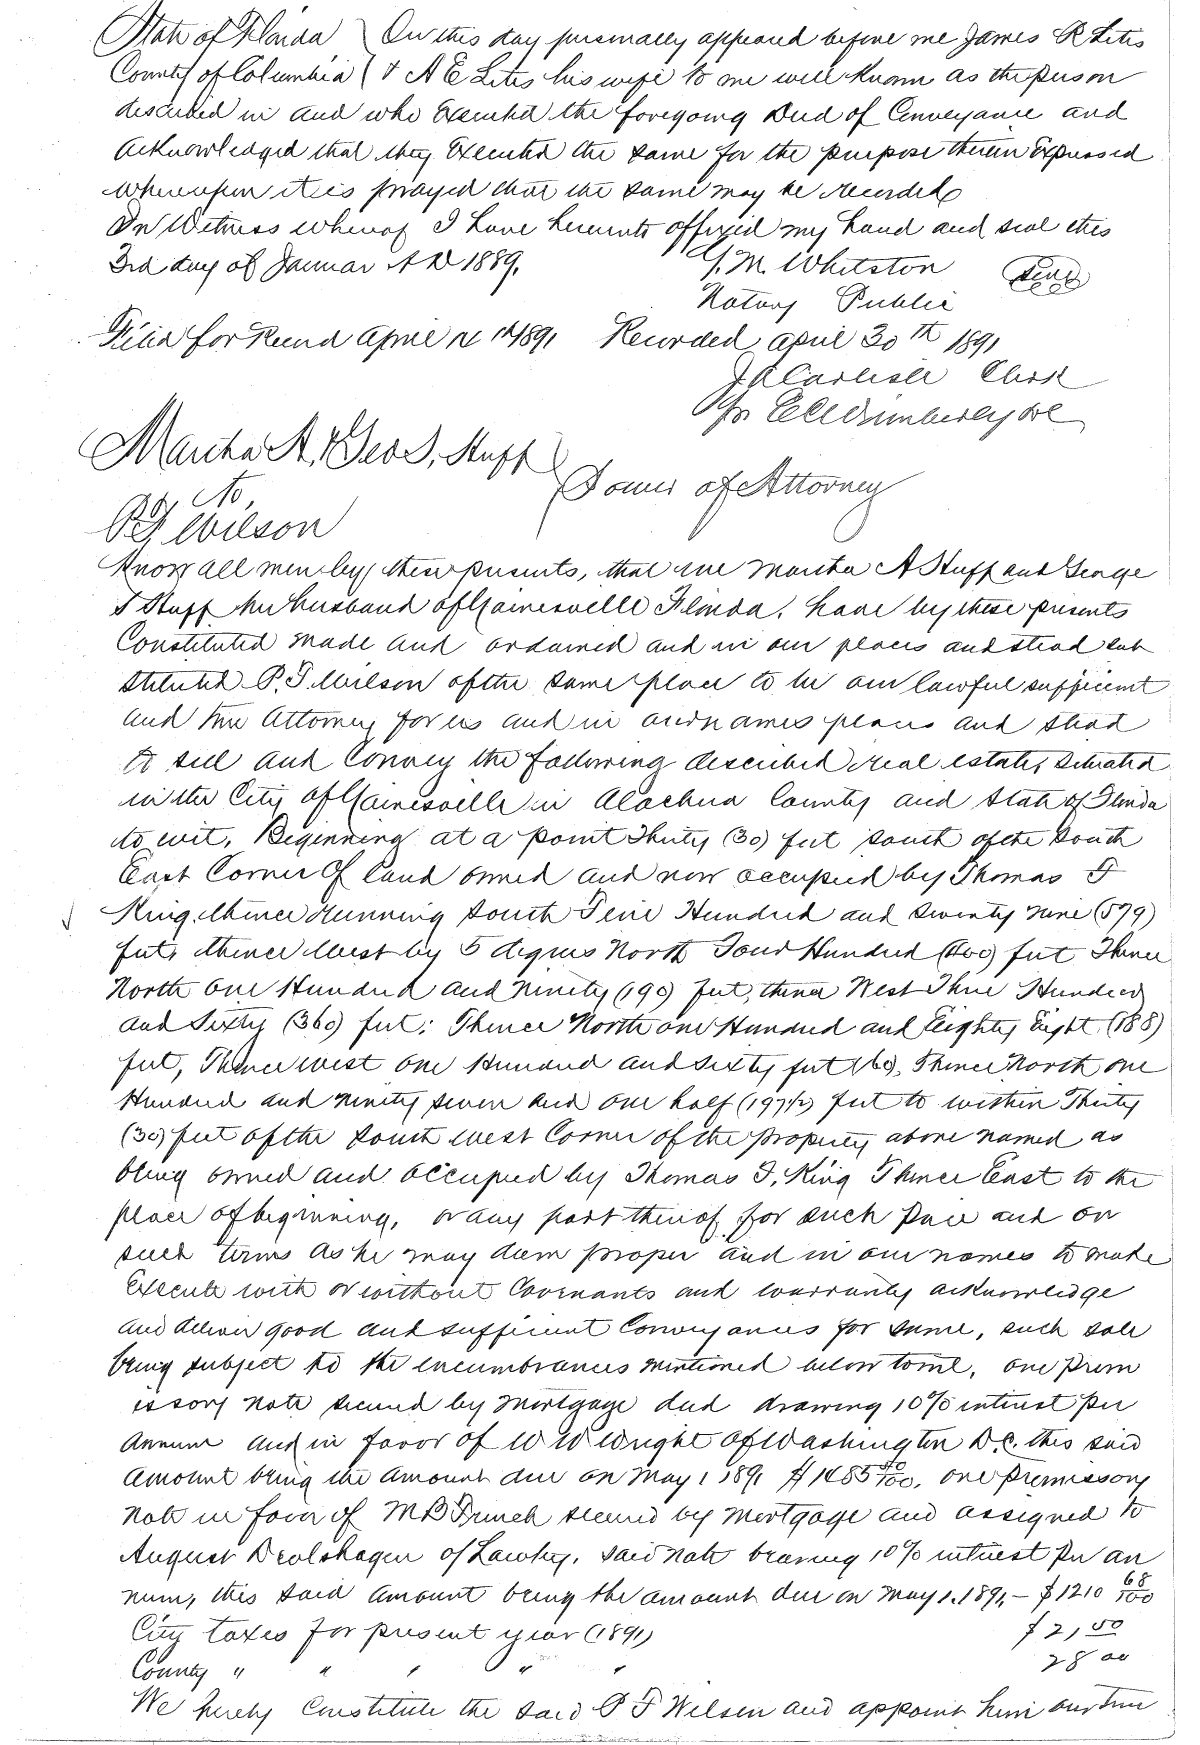 State of Florida } On this day personally appeared before me James R Lites
County of Columbia } & A E Lites his wife to me well known as the person
described in and who Executed the foregoing Deed of Conveyance and
acknowledged that they Executed the same for the purpose therein Expressed
whereupon it is prayed that the same may be recorded
In Witness whereof I have hereunto affixed my hand and seal this
3rd day of Januar A D 1889.
M. Whitston Seal
Notary Public
Filed for Record April 1891 Recorded April 30th 1891
J A Carlisle Clerk
pr Wimberley DC
Martha A, & Geo S, Stuff
To,
P. F. Wilson
Power of Attorney
Know all men by these presents, that we Martha A Stuff and George
S Stuff her husband of Gainesville Florida, have by these presents
Constituted made and ordained and in our places and stead sub
stituted P. F. Wilson of the same place to be our lawful sufficient
and true Attorney for us and in our names places and stead
to sell and Convey the following described real estate, situated
in the City of Gainesville in Alachua County and State of Florida
to wit, Beginning at a point Thirty (30) feet south of the South
East Corner Of land owned and now occupied by Thomas F
King, thence running South Five Hundred and Seventy nine (579)
feet, thence West by 5 degrees North Four Hundred (400) feet Thence
North One Hundred and Ninety (190) feet, thence West Three Hundred
and Sixty (360) feet; Thence North one Hundred and Eighty Eight (188)
feet, Thence west one Hundred and sixty feet (160), Thence North one
Hundred and ninety seven and one half (197 1/2) feet to within Thirty
(30) feet of the South West Corner of the property above named as
being owned and occupied by Thomas F, King Thence East to the
place of beginning, or any part thereof for such price and on
such terms as he may deem proper and in our names to make
Execute with or without Covenants and warranty acknowledge
and deliver good and sufficient Conveyances for same, such sale
being subject to the encumbrances mentioned below to wit, one prom
issory note secured by mortgage deed drawing 10% interest per
annum and in favor of W W Wright of Washington D.C. this said
amount being the amount due on May 1 1891 $ 1485 /100, one Promissory
Note in favor of M B French secured by mortgage and assigned to
August Drolshagen of Lawtey, said note bearing 10% interest per an
num, this said amount being the amount due on May 1. 1891, - $1210 68/100
City taxes for present year (1891) $ 21,50
County " " " " " 28 00
We hereby Constitute the said P F Wilson and appoint him our true